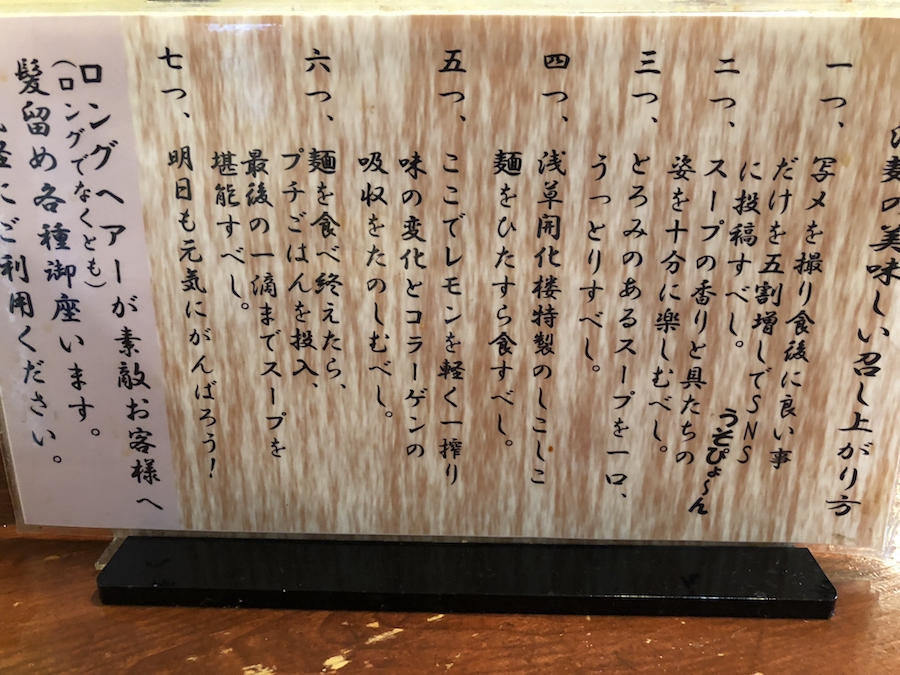 麦の美味しい召し上がり方
一つ、写メを撮り食後に良い事
だけを五割増しでSNS
に投稿すべし。
うそぴょ〜ん
二つ、スープの香りと具たちの
姿を十分に楽しむべし。
三つ、とろみのあるスープを一口、
うっとりすべし。
四つ、浅草開化楼特製のしこしこ
麺をひたすら食すべし。
五つ、ここでレモンを軽く一搾り
味の変化とコラーゲンの
吸収をたのしむべし。
六つ、麺を食べ終えたら、
プチごはんを投入、
最後の一滴までスープを
堪能すべし。
七つ、明日も元気にがんばろう!
ロングヘアーが素敵お客様へ
(ロングでなくとも)
髪留め各種御座います。
軽にご利用ください。